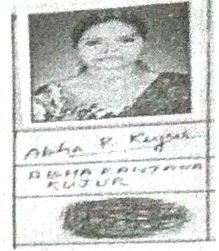 Abha R. Kujur
ABHA RANJANA
KUJUR